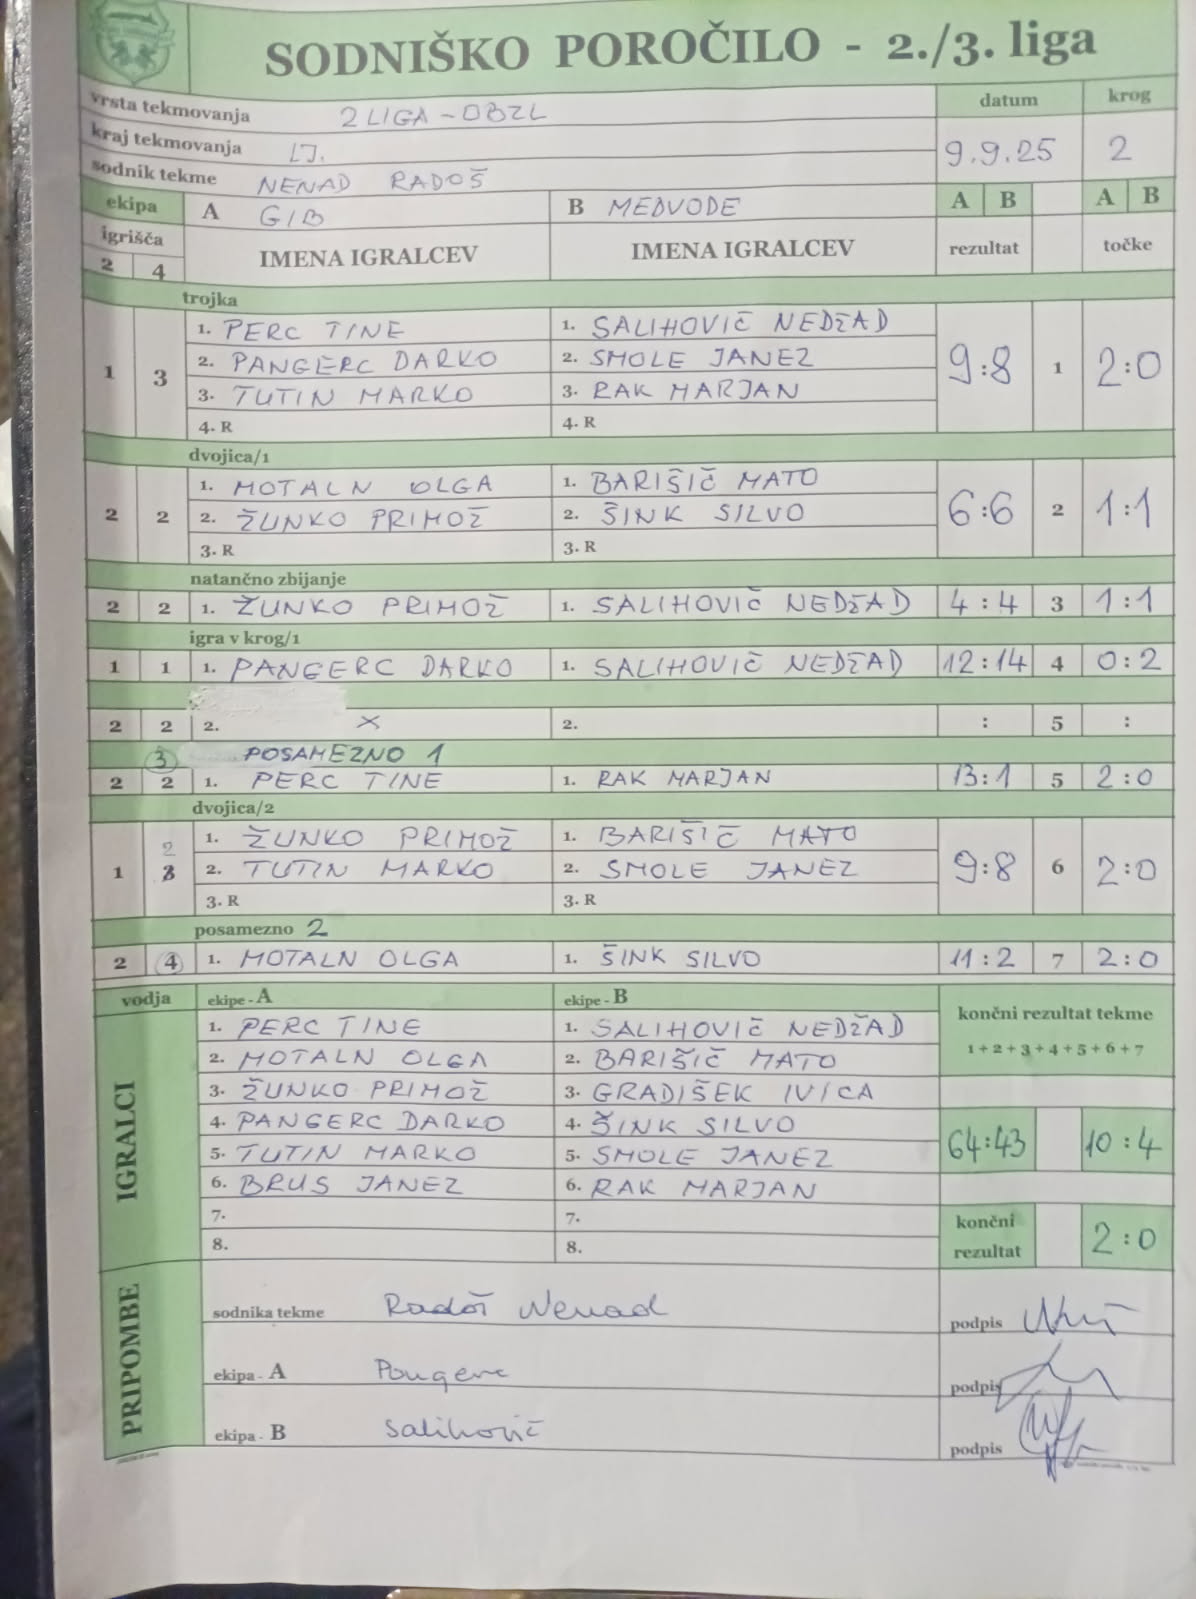 SODNIŠKO POROČILO - 2./3. liga
vrsta tekmovanja 2 LIGA - OBZL datum krog
kraj tekmovanja LJ. 9.9.25 2
sodnik tekme NENAD RADOŠ
ekipa A GIB B MEDVODE A B A B
igrišča IMENA IGRALCEV IMENA IGRALCEV rezultat točke
2 4
trojka
1. PERC TINE 1. SALIHOVIČ NEDŽAD
1 3 2. PANGERC DARKO 2. SMOLE JANEZ 9:8 1 2:0
3. TUTIN MARKO 3. RAK MARJAN
4. R 4. R
dvojica/1
1. MOTALN OLGA 1. BARIŠIČ MATO
2 2 2. ŽUNKO PRIMOŽ 2. ŠINK SILVO 6:6 2 1:1
3. R 3. R
natančno zbijanje
2 2 1. ŽUNKO PRIMOŽ 1. SALIHOVIČ NEDŽAD 4:4 3 1:1
igra v krog/1
1 1 1. PANGERC DARKO 1. SALIHOVIČ NEDŽAD 12:14 4 0:2
2 2 2. X 2. : 5 :
3 POSAMEZNO 1
2 2 1. PERC TINE 1. RAK MARJAN 13:1 5 2:0
dvojica/2
1. ŽUNKO PRIMOŽ 1. BARIŠIČ MATO
2
1 3 2. TUTIN MARKO 2. SMOLE JANEZ 9:8 6 2:0
3. R 3. R
posamezno 2
2 4 1. MOTALN OLGA 1. ŠINK SILVO 11:2 7 2:0
vodja ekipe - A ekipe - B končni rezultat tekme
1+2+3+4+5+6+7
IGRALCI
1. PERC TINE 1. SALIHOVIČ NEDŽAD
2. MOTALN OLGA 2. BARIŠIČ MATO
3. ŽUNKO PRIMOŽ 3. GRADIŠEK IVICA
4. PANGERC DARKO 4. ŠINK SILVO 64:43 10:4
5. TUTIN MARKO 5. SMOLE JANEZ
6. BRUS JANEZ 6. RAK MARJAN
7. 7. končni
8. 8. rezultat 2:0
PRIPOMBE
sodnika tekme Radoš Nenad podpis
ekipa - A Pangerc podpis
ekipa - B Salihovič podpis